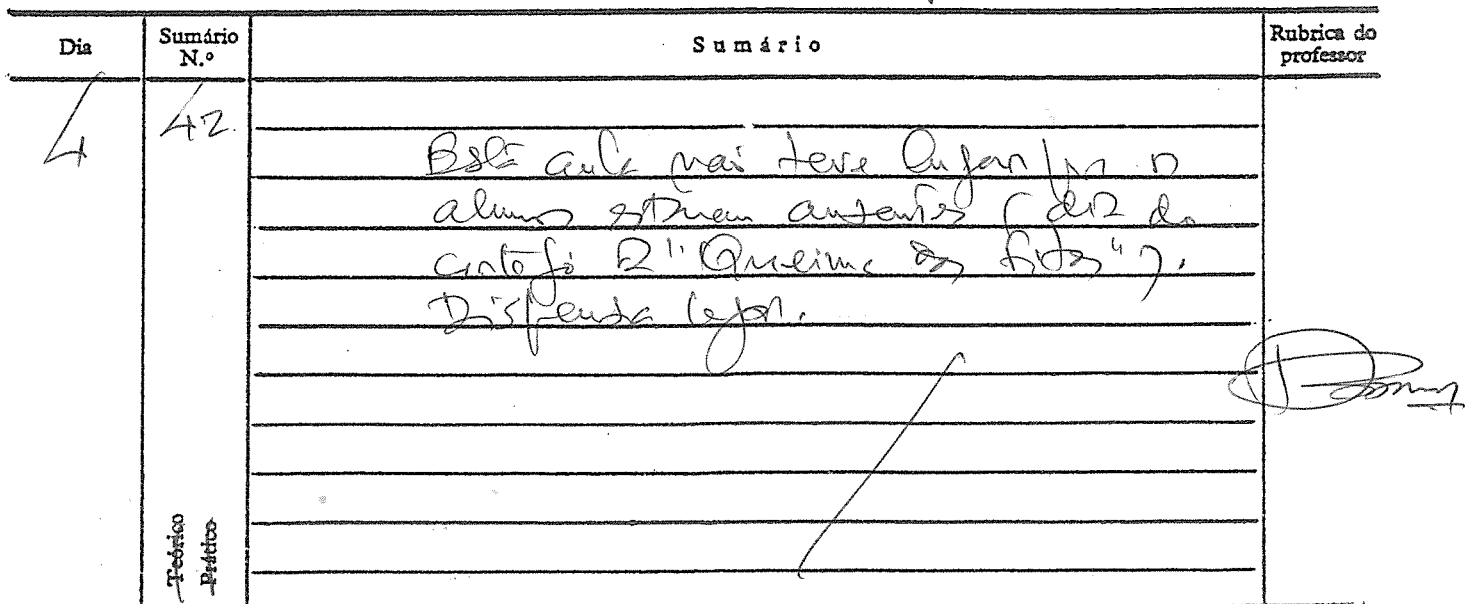 Dia
Sumário N.º
Sumário
Rubrica do professor
4
42.
Esta aula não teve lugar por os
alunos estarem ausentes (dia do
cortejo da "Queima das fitas").
Dispensa legal.
Teórico
Prático